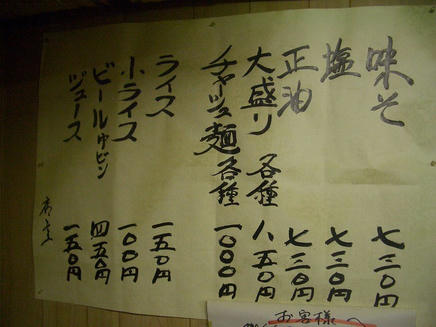 味そ 七三〇円
塩 七三〇円
正油 七三〇円
大盛り 各種 八五〇円
チャーシュー麺 各種 一〇〇〇円
ライス 一五〇円
小ライス 一〇〇円
ビール中ビン 四五〇円
ジュース 一五〇円
お客様へ